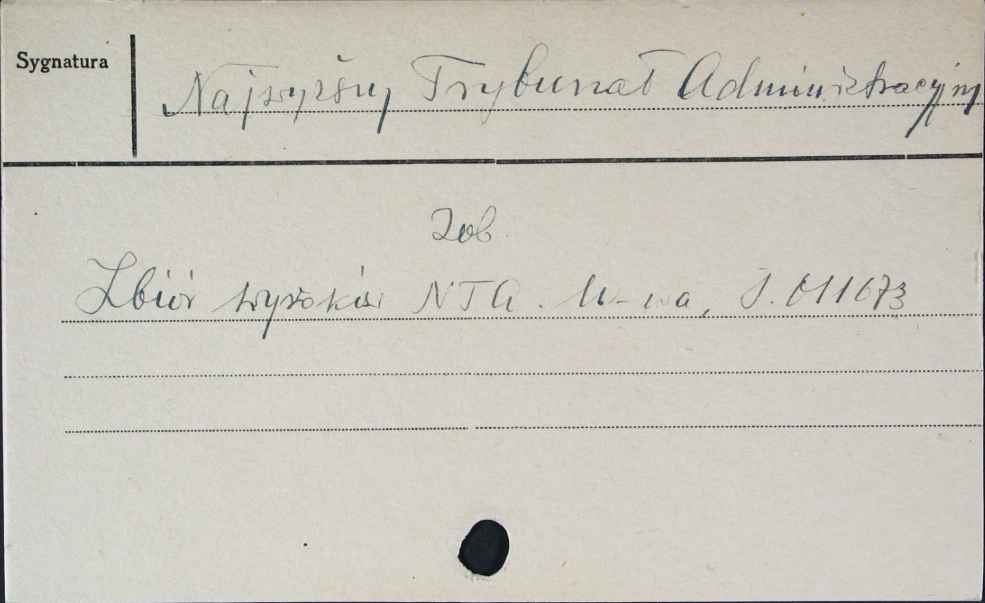 Sygnatura
Najwyższy Trybunał Administracyjny
Zob.
Zbiór wyroków NTA. W-wa, J. 011673